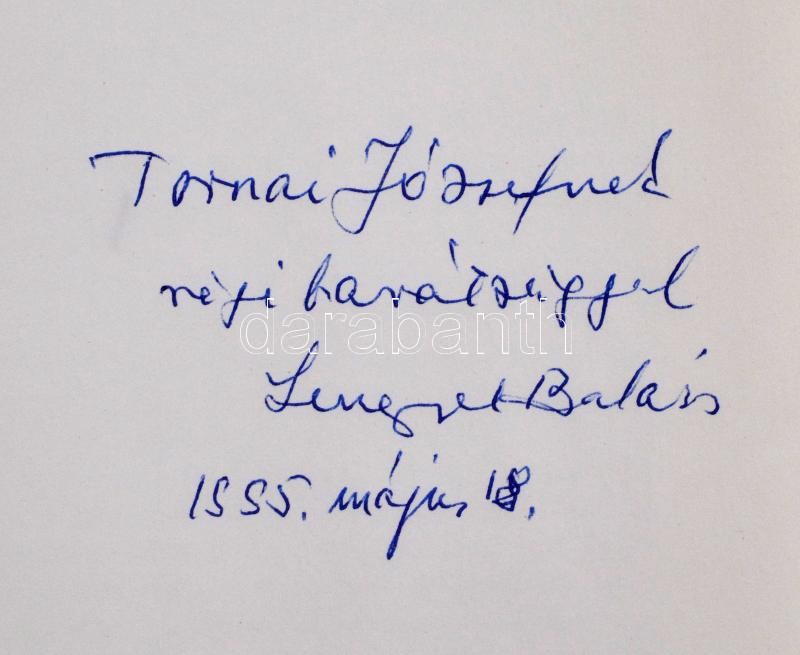 Tornai Józsefnek
régi barátsággal
darabanth
Lengyel Balázs
1995. május 18.